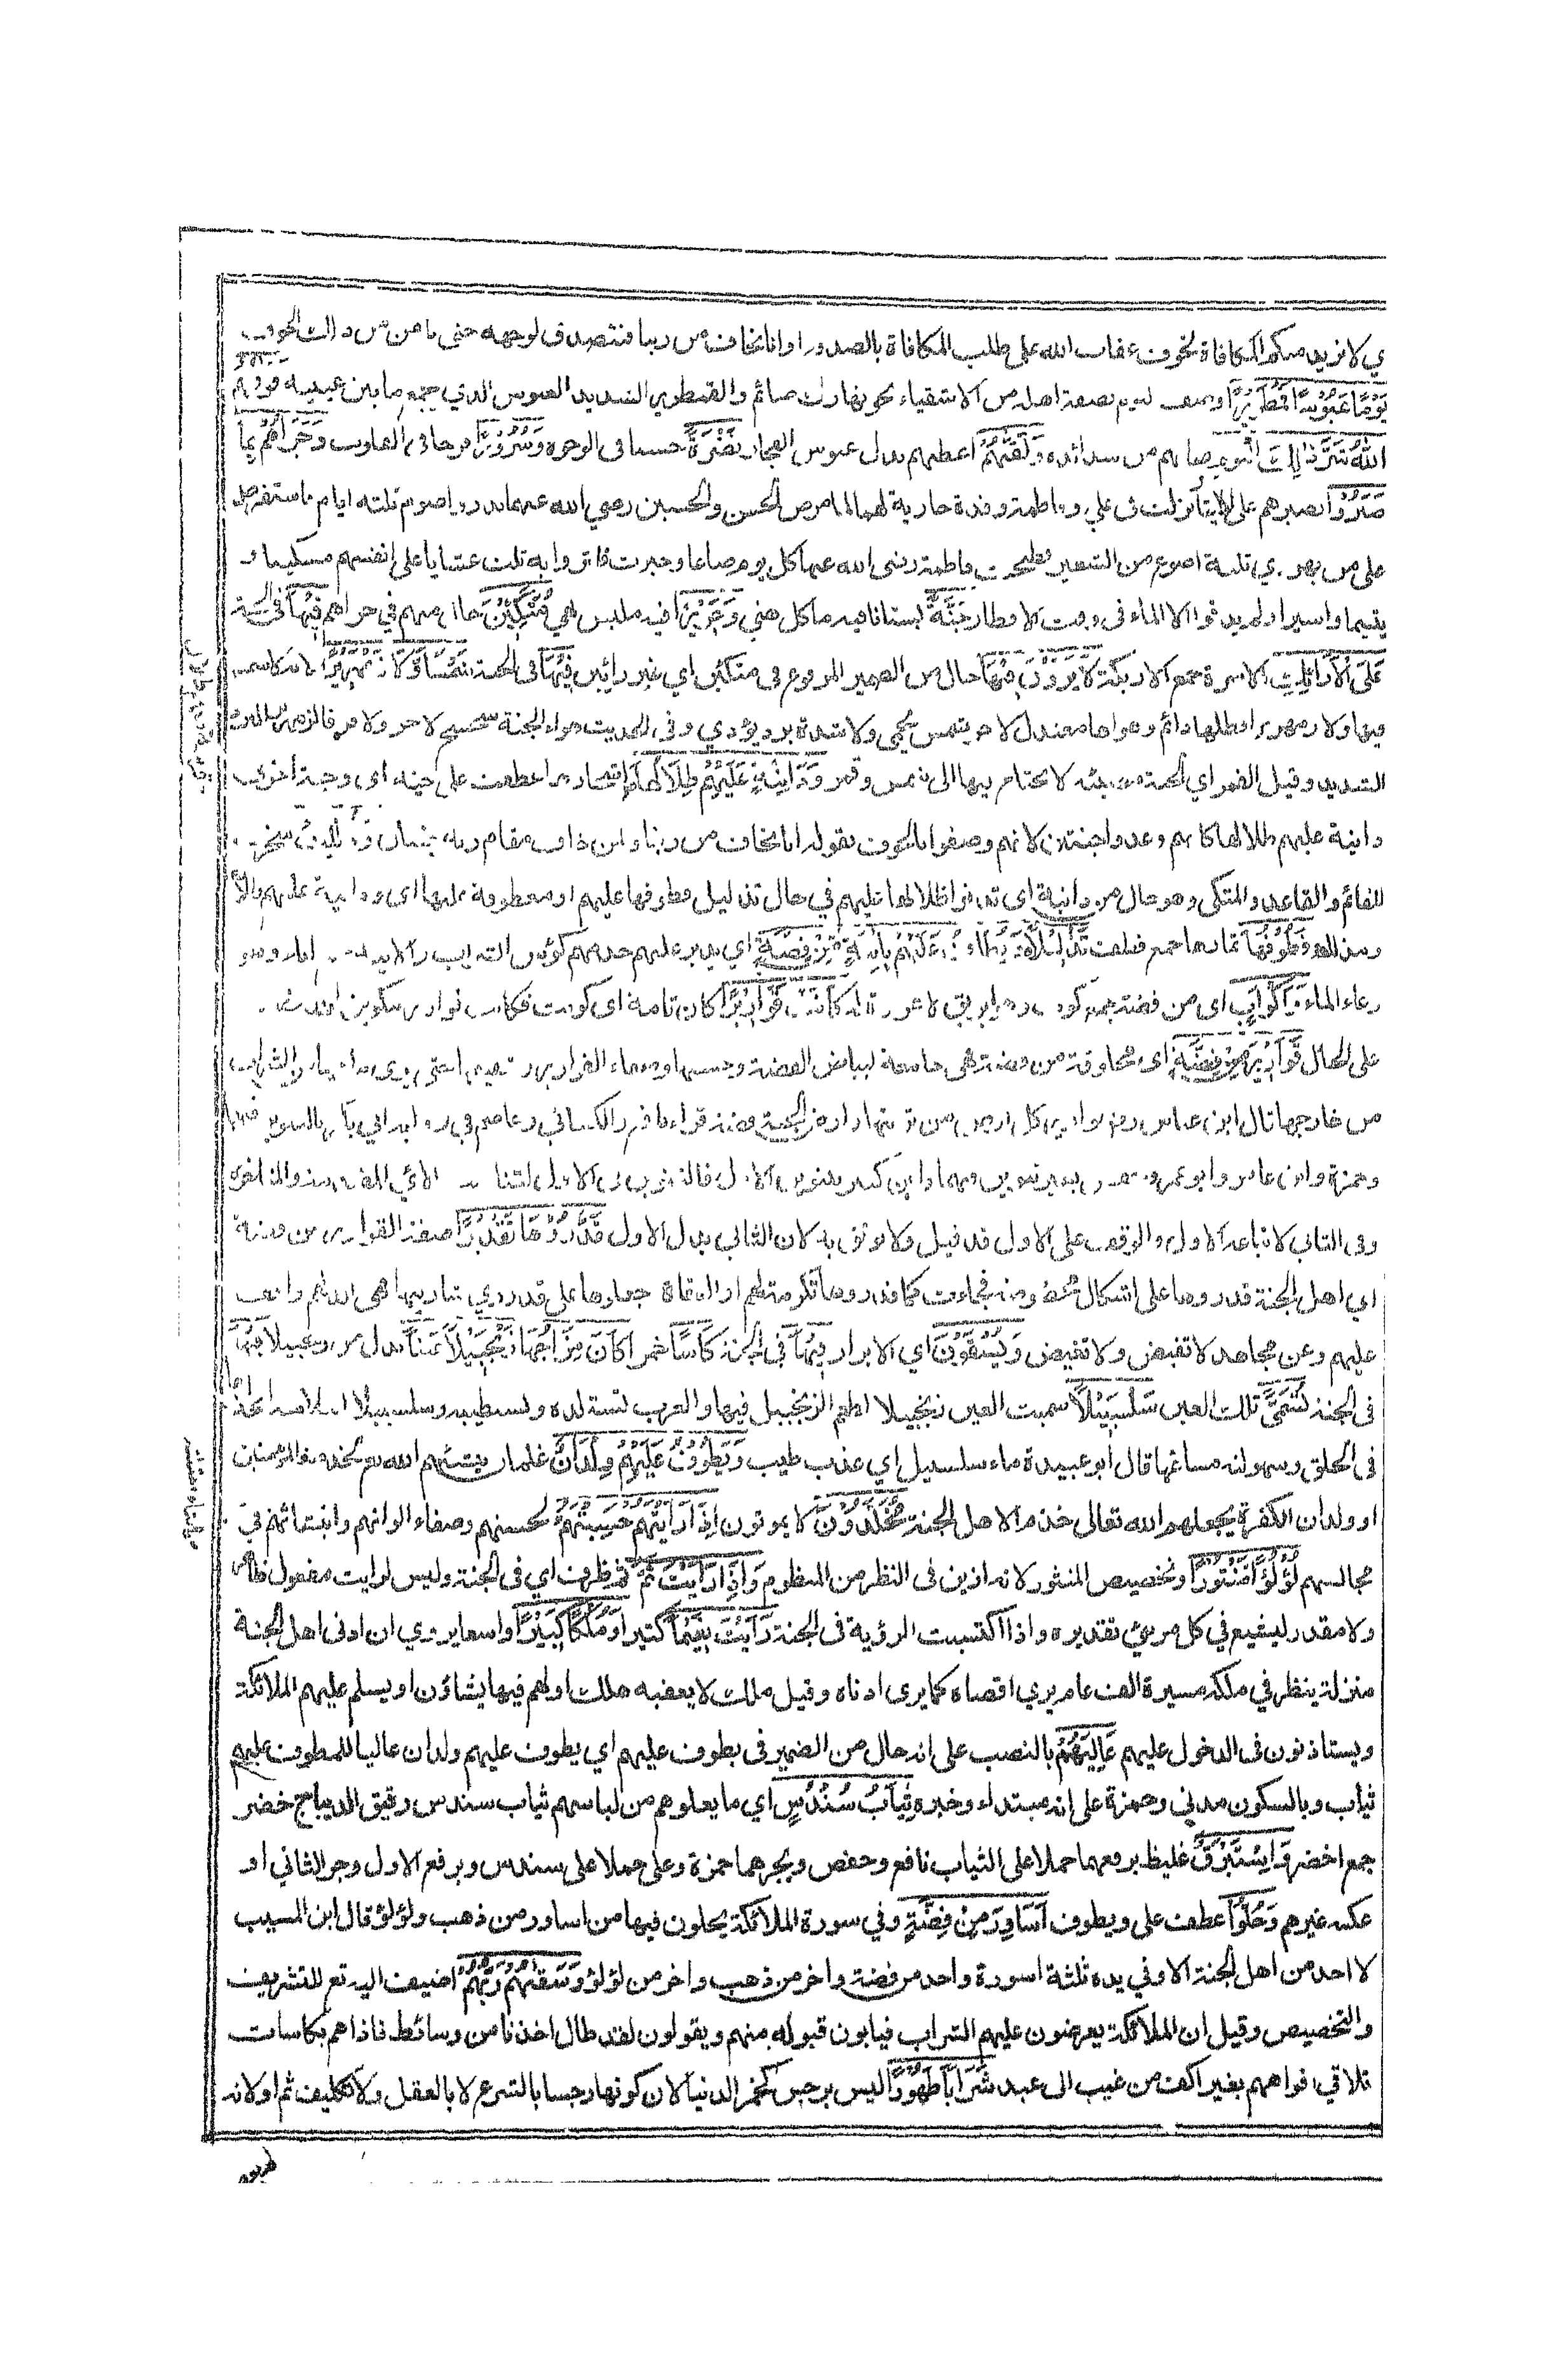 ي لا نريد منكم المكافاة لخوف عقاب الله على طلب المكافاة بالصدور او انا نخاف من ربنا فنتصدق لوجهه حتى نامن من ذالك الخوف
يَوْمًا عَبُوْسًا قَمْطَرِيْرًا وصف ليوم بصفة اهله من الاشقياء نحو نهارك صائم والقمطرير الشديد العبوس الذي يجمع ما بين عينيه فَوَقٰىهُمُ
اللّٰهُ شَرَّ ذٰلِكَ الْيَوْمِ صانهم من شدائده وَلَقّٰىهُمْ اعطاهم بدل عبوس الفجار نَضْرَةً حسنا في الوجوه وَسُرُوْرًا فرحا في القلوب وَجَزٰىهُمْ بِمَا
صَبَرُوْا بصبرهم على الايثار نزلت في علي وفاطمة وفضة جارية لهما لما مرض الحسن والحسين رضي الله عنهما نذروا صوم ثلثة ايام فاستقرض
على من يهودي ثلثة اصوع من الشعير فطحنت فاطمة رضى الله عنها كل يوم صاعا وخبزت فاثروا به ثلث عشايا على انفسهم مسكينا و
يتيما واسيرا ولم يذوقوا الا الماء في وقت الافطار جَنَّةً بستانا فيه ماكل هني وَحَرِيْرًا فيه ملبس بهي مُتَّكِـِٕيْنَ حال من هم في جزاهم فِيْهَا في الجنة
عَلَى الْاَرَآئِكِ الاسرة جمع الاريكة لَا يَرَوْنَ فِيْهَا حال من الضمير المرفوع في متكئين اي غير رائين فِيْهَا في الجنة شَمْسًا وَّلَا زَمْهَرِيْرًا لانه لا شمس
فيها ولا زمهرير فظلها دائم وهواها معتدل لا حر شمس يحمي ولا شدة برد يؤذي وفي الحديث هواء الجنة سجسج لا حر ولا قر فالزمهرير البرد
الشديد وقيل القمر اي الجنة مضيئة لا يحتاج فيها الى شمس وقمر وَدَانِيَةً عَلَيْهِمْ ظِلٰلُهَا قريبة منهم ظلال اشجارها عطفت على جنة اى وجنة اخرى
دانية عليهم ظلالها كانهم وعدوا جنتين لانهم وصفوا بالخوف بقوله انا نخاف من ربنا ولمن خاف مقام ربه جنتان وَذُلِّلَتْ سخرت
للقائم والقاعد والمتكى وهو حال من دانية اى تدنو ظلالها عليهم في حال تذليل قطوفها عليهم او معطوفة عليها اى ودانية عليهم ظلالها
ومذللة قُطُوْفُهَا ثمارها جمع قطف تَذْلِيْلًا وَيُطَافُ عَلَيْهِمْ بِاٰنِيَةٍ مِّنْ فِضَّةٍ اي يدير عليهم خدمهم كؤس الشراب والانية جمع اناء وهو
وعاء الماء وَّاَكْوَابٍ اى من فضة جمع كوب وهو ابريق لا عروة له كَانَتْ قَوَارِيْرَا كان تامة اى كونت فكانت قوارير بتكوين الله
على الحال قَوَارِيْرَا مِنْ فِضَّةٍ اى مخلوقة من فضة فهي جامعة لبياض الفضة وحسنها وصفاء القوارير وشفيفها حتى يرى ما فيها من الشراب
من خارجها قال ابن عباس رض قوارير كل ارض من تربتها وارض الجنة فضة قراء نافع والكسائي وعاصم في رواية ابي بكر بالتنوين فيهما
وحمزة وابن عامر وابو عمرو وحفص بغير تنوين فيهما وابن كثير بتنوين الاول فالتنوين في الاول لتناسب الاي المتقدمة والمتاخرة
وفى الثاني لاتباعه الاول والوقف على الاول قد قيل ولا يوثق به لان الثاني بدل الاول قَدَّرُوْهَا تَقْدِيْرًا صفة القوارير من فضة
اي اهل الجنة قدروها على اشكال مخصوصة فجاءت كما قدروها تكرمة لهم او السقاة جعلوها على قدر ري شاربيها فهى الذ لهم واخف
عليهم وعن مجاهد لا تفيض ولا تغيض وَيُسْقَوْنَ اي الابرار فِيْهَا في الجنة كَاْسًا خمرا كَانَ مِزَاجُهَا زَنْجَبِيْلًا عَيْنًا بدل من زنجبيلا فِيْهَا
في الجنة تُسَمّٰى تلك العين سَلْسَبِيْلًا سميت العين زنجبيلا لطعم الزنجبيل فيها والعرب تستلذه وتستطيبه وسلسبيلا لسلاسة انحدارها
في الحلق وسهولة مساغها قال ابو عبيدة ماء سلسبيل اي عذب طيب وَيَطُوْفُ عَلَيْهِمْ وِلْدَانٌ غلمان ينشئهم الله تع لخدمة المؤمنين
او ولدان الكفرة يجعلهم الله تعالى خدما لاهل الجنة مُّخَلَّدُوْنَ لا يموتون اِذَا رَاَيْتَهُمْ حَسِبْتَهُمْ لحسنهم وصفاء الوانهم وانبثاثهم في
مجالسهم لُؤْلُؤًا مَّنْثُوْرًا وتخصيص المنثور لانه ازين في النظر من المنظوم وَاِذَا رَاَيْتَ ثَمَّ ثم ظرف اي في الجنة وليس لرايت مفعول ظاهر
ولا مقدر ليشيع في كل مرئي تقديره واذا اكتسبت الرؤية في الجنة رَاَيْتَ نَعِيْمًا كثيرا وَّمُلْكًا كَبِيْرًا واسعا يروي ان ادنى اهل الجنة
منزلة ينظر في ملكه مسيرة الف عام يري اقصاه كما يرى ادناه وقيل ملك لا يعقبه هلك او لهم فيها يشاؤن او يسلم عليهم الملائكة
ويستاذنون في الدخول عليهم عَالِيَهُمْ بالنصب على انه حال من الضمير في يطوف عليهم اي يطوف عليهم ولدان عاليا للمطوف عليهم
ثياب وبالسكون مدني وحمزة على انه مبتداء وخبره ثِيَابُ سُنْدُسٍ اي ما يعلوهم من لباسهم ثياب سندس رقيق الديباج خضر
جمع اخضر وَاِسْتَبْرَقٌ غليظ برفعهما حملا على الثياب نافع وحفص وبجرهما حمزة وعلي حملا على سندس وبرفع الاول وجر الثاني او
عكسه غيرهم وَحُلُّوْا عطف على ويطوف اَسَاوِرَ مِنْ فِضَّةٍ وفي سورة الملائكة يحلون فيها من اساور من ذهب ولؤلؤ قال ابن المسيب
لا احد من اهل الجنة الا وفي يده ثلثة اسورة واحد من فضة واخر من ذهب واخر من لؤلؤ وَسَقٰىهُمْ رَبُّهُمْ اضيف اليه تع للتشريف
والتخصيص وقيل ان الملائكة يعرضون عليهم الشراب فيابون قبوله منهم ويقولون لقد طال اخذنا من وسائط فاذا هم بكاسات
تلاقي افواههم بغير اكف من غيب الى عبد شَرَابًا طَهُوْرًا ليس برجس كخمر الدنيا لان كونها رجسا بالشرع لا بالعقل ولا تكليف ثم او لانه